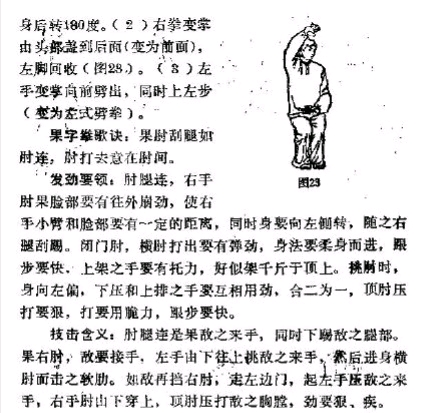 身后转180度。(2)右拳变掌
由头部盖到后面(变为前面),
左脚回收(图28)。(3)左
手变掌向前劈出,同时上左步
(变为左式劈拳)。
果字拳歌诀:果肘刮腿如
肘连,肘打去意在肘间。
发劲要领:肘腿连,右手
肘果脸部要有往外崩劲,使右
手小臂和脸部要有一定的距离,同时身要向左侧转,随之右
腿刮踢。闭门肘,横肘打出要有弹劲,身法要柔身而进,跟
步要快,上架之手要有托力,好似架千斤于顶上。挑肘时,
身向左偏,下压和上排之手要互相用劲,合二为一,顶肘压
打要狠,打要用脆力,跟步要快。
技击含义:肘腿连是果敌之来手,同时下踢敌之腿部。
果右肘,敌要接手,左手由下往上挑敌之来手,然后进身横
肘而击之软肋。如敌再挡右肘,走左边门,起左手压敌之来
手,右手肘由下穿上,顶肘压打敌之胸膛,劲要狠、疾。
图23